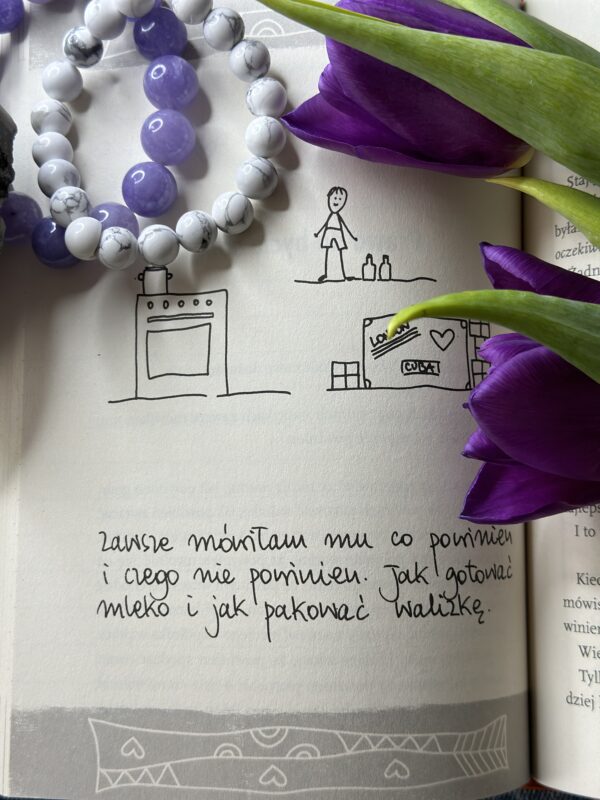 CUBA
Zawsze mówiłam mu co powinien
i czego nie powinien. Jak gotować
mleko i jak pakować walizkę.
Staj
była
oczekiw
Żadn
I to
Kied
mówis
winien
Wie
Tylk
dziej